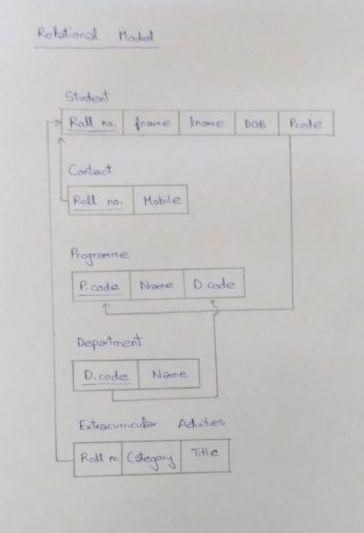 Relational Model
Student
Roll no. fname lname DOB Pcode
Contact
Roll no. Mobile
Programme
P.code Name D.code
Department
D.code Name
Extracurricular Activities
Roll no Category Title